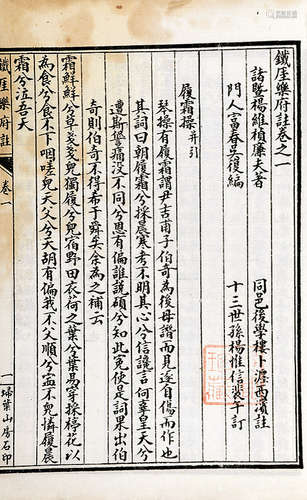 鐵厓樂府註卷之一
諸暨楊維楨廉夫著
同邑後學樓卜瀍西濱註
門人富春吳復編
十三世孫楊惟信裴午訂
履霜操并引
琴操有履霜謂尹吉甫子伯奇為後母譖而見逐自傷而作也
其詞曰朝履霜兮採晨寒考不明其心兮信讒言何辜皇天兮
遭斯譽痛沒不同兮恩有偏誰說碩兮知此冤使是詞果出伯
奇則伯奇不得希于舜矣余為之補云
霜鮮鮮兮草戔戔兒獨履兮兒宿野田衣荷之葉兮葉易穿採楟花以
為食兮食不下咽嗟兒天父兮天胡有偏我不父順兮寧不兒憐履晨
霜兮泣吾天
鐵厓樂府註
卷一
一
掃葉山房石印